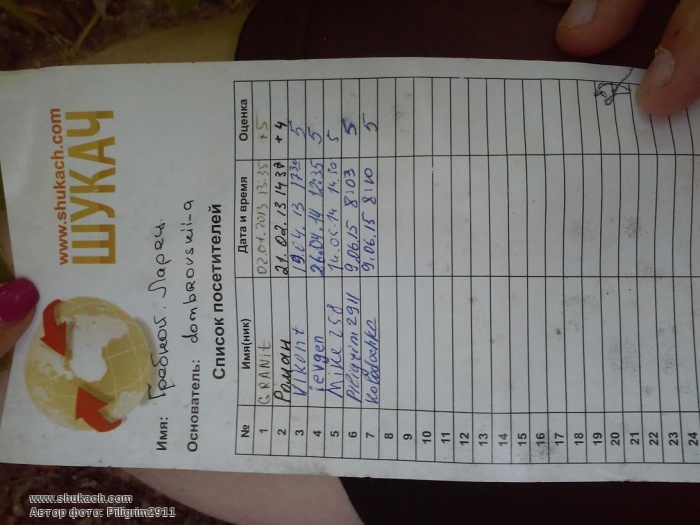 www.shukach.com
ШУКАЧ
Имя: Грабной Ларец
Основатель: dombrovskii-a
Список посетителей
№ Имя(ник) Дата и время Оценка
1 GRANIT 02.01.2013 13:35 +5
2 Роман 21.02.13 14 37 +4
3 Vikont 19.04.13 17 30 5
4 ievgen 26.04.14 12:35 5
5 Mike 14.05.14 14:50 5
6 Piligrim2911 9.06.15 8:03 5
7 Kolbaduchka 9.06.15 8:10 5
8
9
10
11
12
13
14
15
16
17
18
19
20
21
22
23
24
www.shukach.com
Автор фото: Piligrim2911